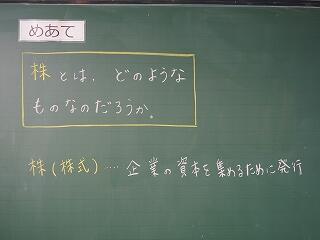 めあて
株とは、どのような
ものなのだろうか。
株(株式)‥‥企業の資本を集めるために発行